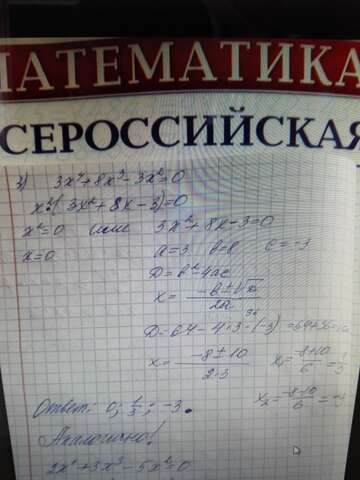 МАТЕМАТИКА
ВСЕРОССИЙСКАЯ
3) 3x⁴+8x³-3x²=0
x²(3x²+8x-3)=0
x²=0 или 3x²+8x-3=0
x=0 a=3 b=8 c=-3
D=b²-4ac
x= -b±√D / 2a
D=64-4·3·(-3)=64+36=100
x= -8±10 / 2·3 x₁= -8+10 / 6 = 1/3
Ответ: 0; 1/3; -3. x₂= -8-10 / 6 = -3
Аналогично!
2x⁴+3x³-5x²=0